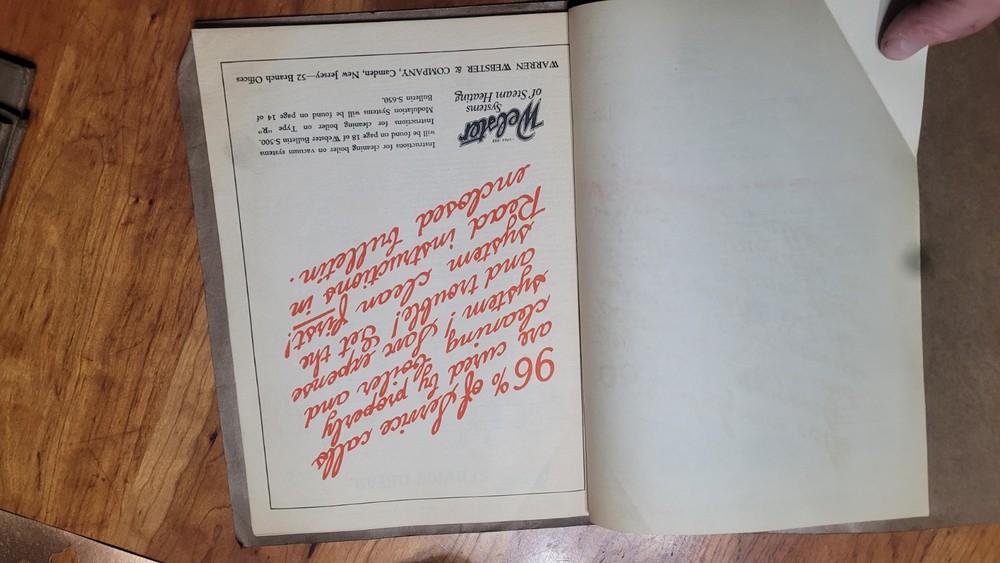 96% of Service calls
are cured by properly
cleaning boiler and
system! Save expense
and trouble! Get the
system clean first!
Read instructions in
enclosed bulletin.
Webster
Systems
of Steam Heating
Instructions for cleaning boiler on vacuum systems
will be found on page 18 of Webster Bulletin S-500.
Instructions for cleaning boiler on Type "R"
Modulation Systems will be found on page 14 of
Bulletin S-650.
WARREN WEBSTER & COMPANY, Camden, New Jersey—52 Branch Offices